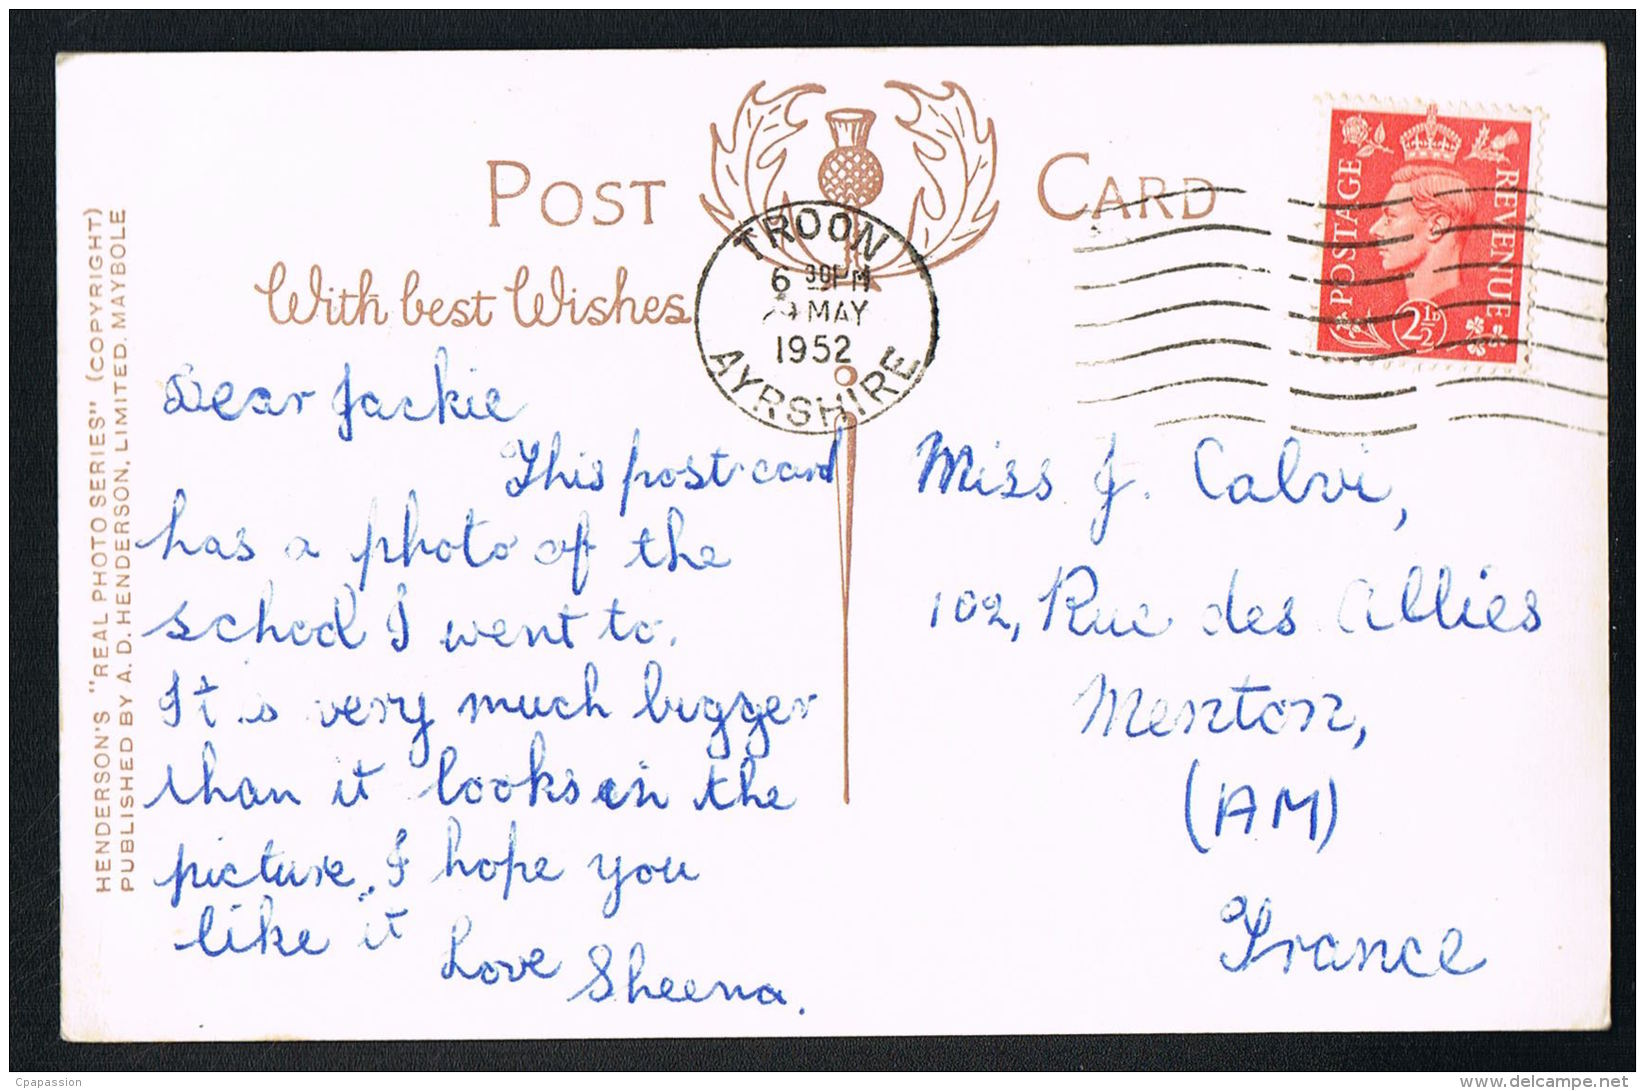 POST CARD
With best Wishes
HENDERSON'S "REAL PHOTO SERIES" (COPYRIGHT)
PUBLISHED BY A. D. HENDERSON, LIMITED. MAYBOLE
TROON
6 30PM
MAY
1952
AYRSHIRE
POSTAGE REVENUE
2½D
Dear Jackie
This post-card
has a photo of the
school I went to.
It is very much bigger
than it looks in the
picture. I hope you
like it
Love Sheena.
Miss J. Calvi,
102, Rue des Allies
Menton,
(AM)
France
Cpapassion
www.delcampe.net